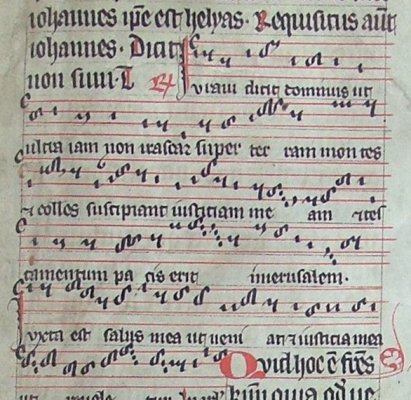 iohannes ip̄e est helyas. Requisitus aūt
iohannes. Dicit
non sum. T R
uraui dicit dominus ut
ultra iam non irascar super ter ram montes
et colles suscipiant iusticiam me am et tes
tamentum pa cis erit in ierusalem.
uxta est salus mea ut ueni at et iusticia mea
Quid hoc ē frēs